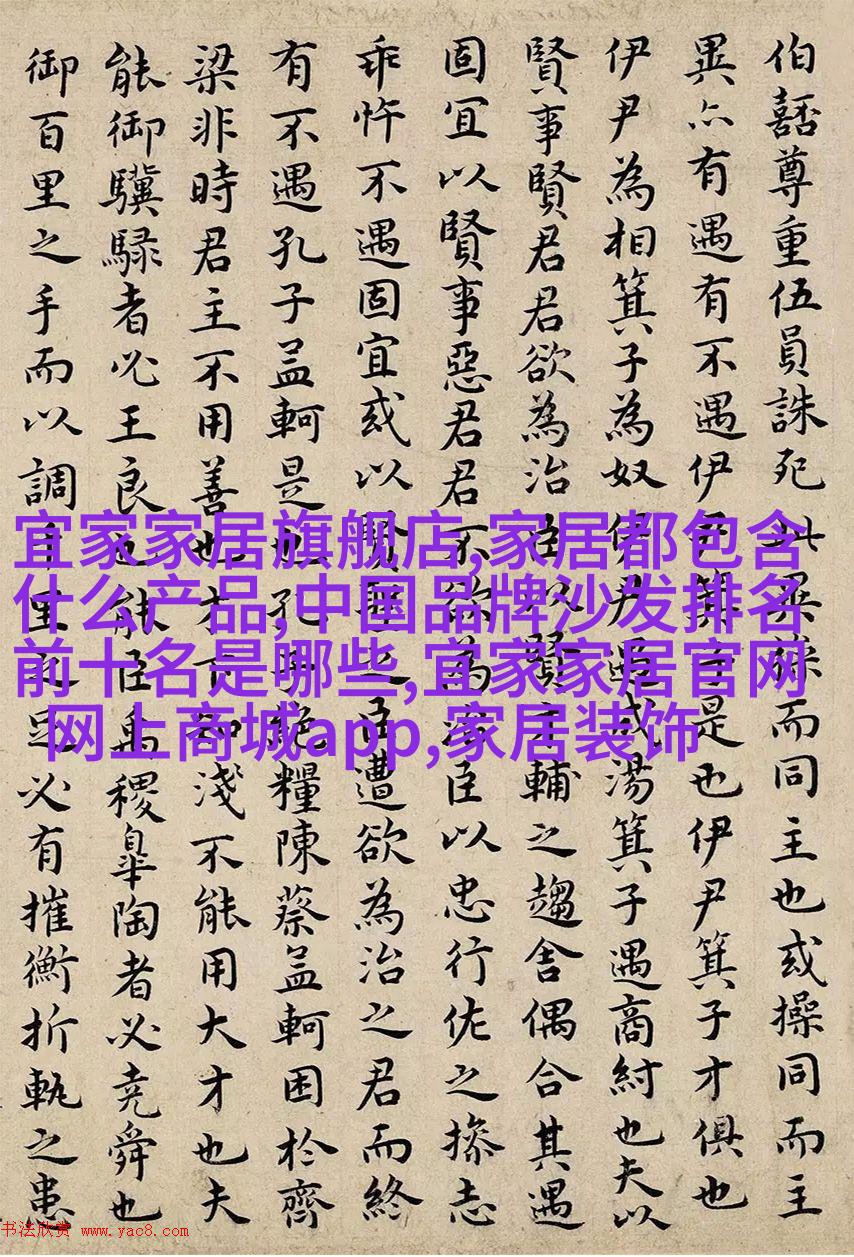 伯嚭尊重伍員誅死此異操而同主也或操同而主
異亦有遇有不遇伊尹箕子是也伊尹箕子才俱也
伊尹為相箕子為奴伊尹遇成湯箕子遇商紂也夫以
賢事賢君君欲為治臣以賢才輔之趨舍偶合其遇
固宜以賢事惡君君不欲為治臣以忠行佐之操志
乖忤不遇固宜或以賢聖之臣遭欲為治之君而終
有不遇孔子孟軻是也孔子絕糧陳蔡孟軻困於齊
梁非時君主不用善也才下知淺不能用大才也夫
能御驥騄者必王良也能臣禹稷皋陶者必堯舜也
御百里之手而以調千里之足必有摧衡折軛之患
宜家家居旗舰店,家居都包含
什么产品,中国品牌沙发排名
前十名是哪些,宜家家居官网
网上商城app,家居装饰
书法欣赏 www.yac8.com